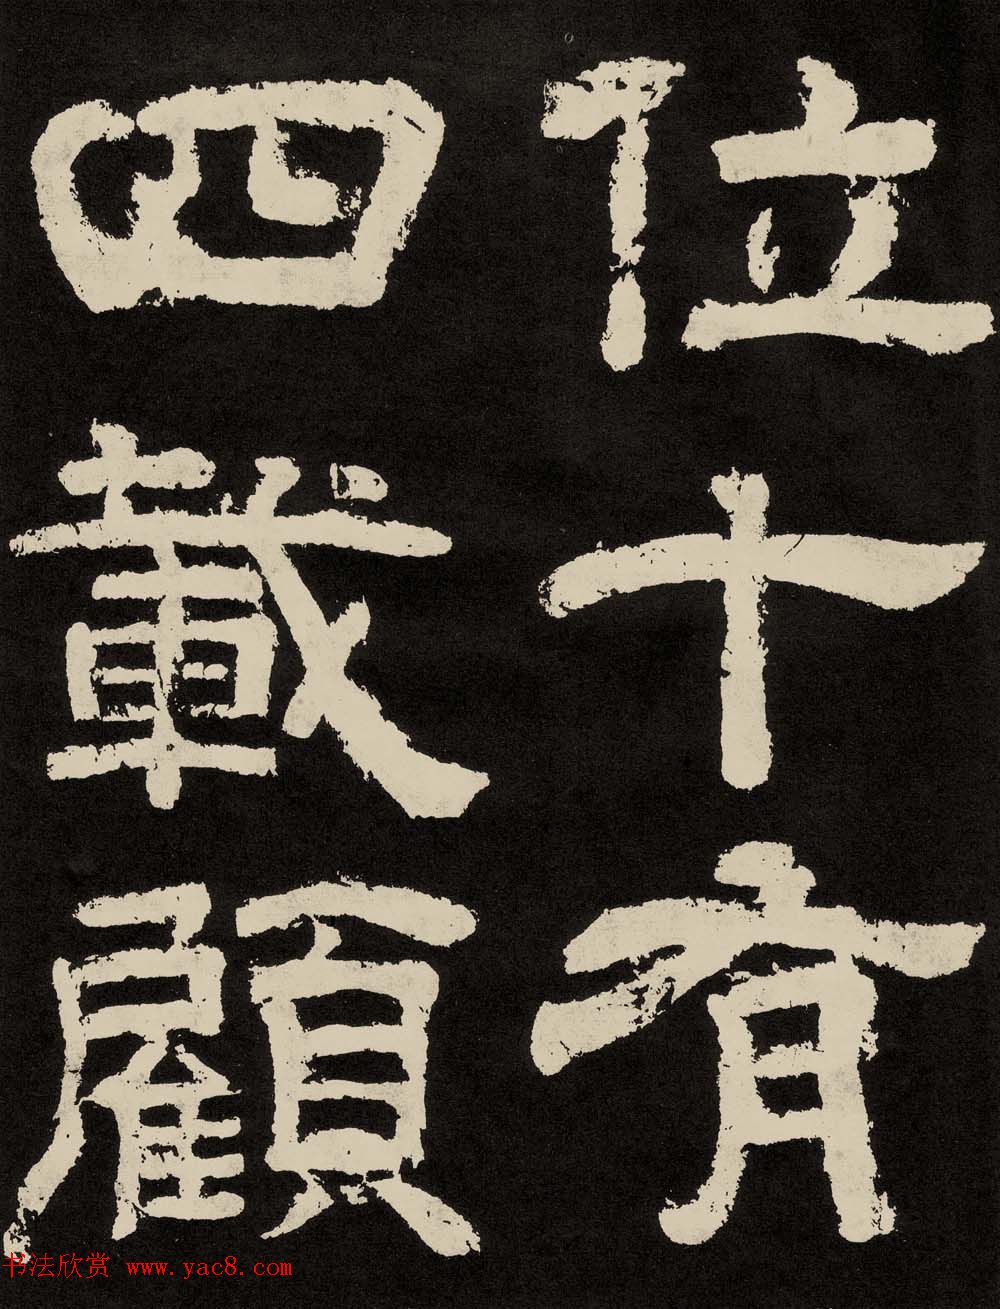 位十有
四載顧
书法欣赏 www.yac8.com